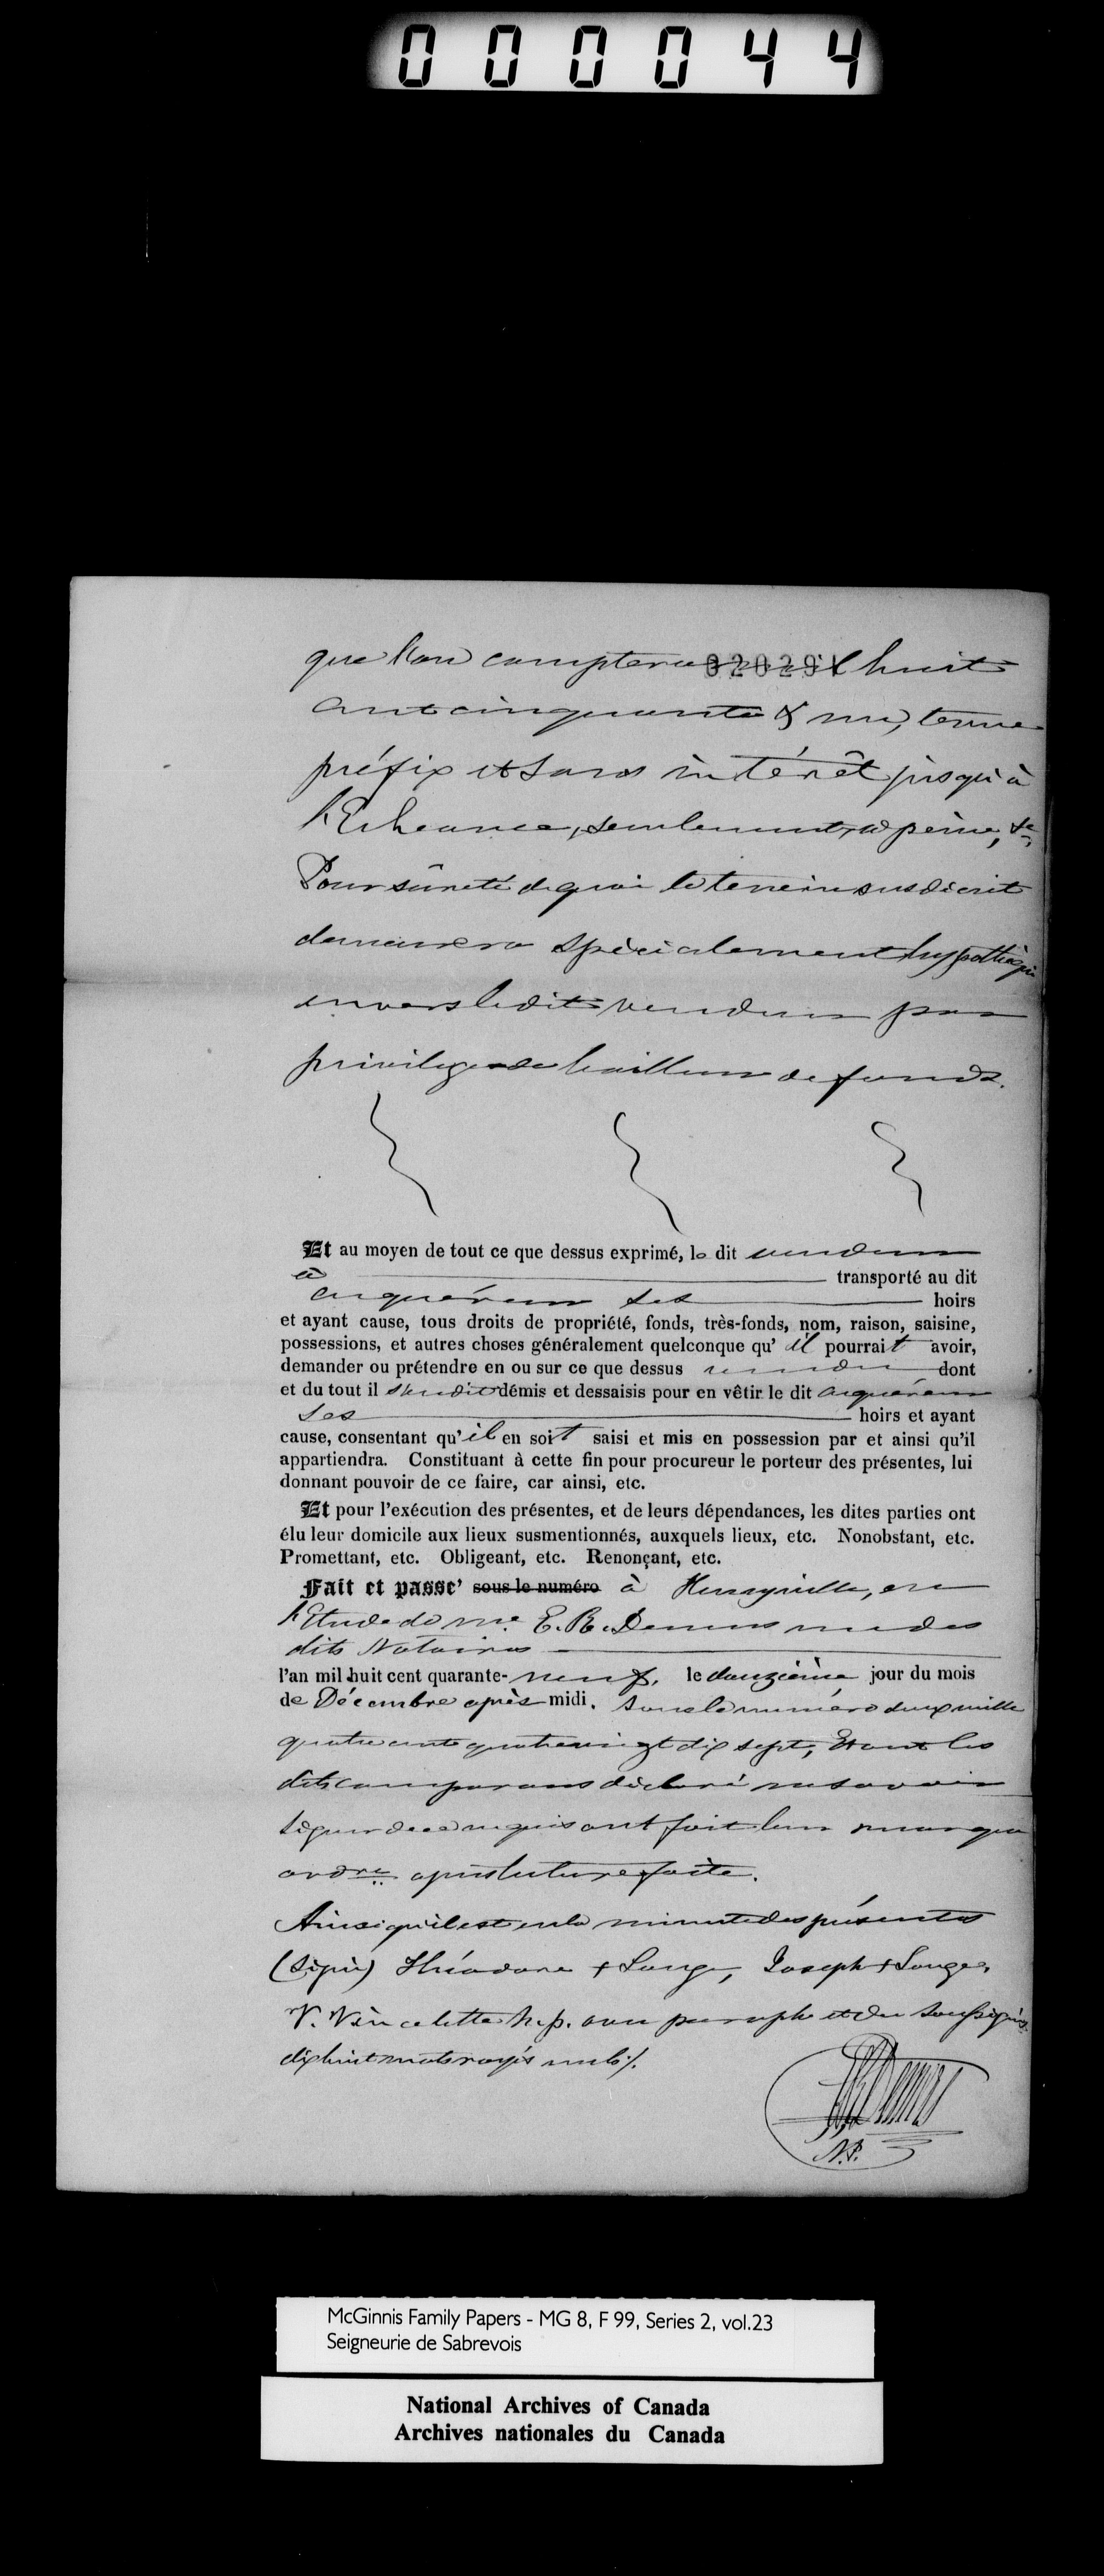 000044
320291
que l'on comptera mil huit
cent cinquante & un, terme
préfix et sans intérêt jusqu'à
l'Echeance, seulement, à peine, &c
Pour sûreté de quoi le terrein susdécrit
demeurera spécialement hypothéqué
envers le dit vendeur par
privilége de bailleur de fonds.
Et au moyen de tout ce que dessus exprimé, le dit vendeur
a transporté au dit
acquéreur ses hoirs
et ayant cause, tous droits de propriété, fonds, très-fonds, nom, raison, saisine,
possessions, et autres choses généralement quelconque qu' il pourrait avoir,
demander ou prétendre en ou sur ce que dessus vendu dont
et du tout il s'en dit démis et dessaisis pour en vêtir le dit acquéreur
ses hoirs et ayant
cause, consentant qu'il en soit saisi et mis en possession par et ainsi qu'il
appartiendra. Constituant à cette fin pour procureur le porteur des présentes, lui
donnant pouvoir de ce faire, car ainsi, etc.
Et pour l'exécution des présentes, et de leurs dépendances, les dites parties ont
élu leur domicile aux lieux susmentionnés, auxquels lieux, etc. Nonobstant, etc.
Promettant, etc. Obligeant, etc. Renonçant, etc.
Fait et passe' sous le numéro à Henryville, en
l'Etude de Me. E. R. Demers un des
dits Notaires
l'an mil huit cent quarante-neuf, le douzième jour du mois
de Décembre après midi. sous le numéro deux mille
quatre cents quatrevingt dix sept, Et ont les
dits comparans déclaré ne savoir
signer de ce requis ont fait leur marque
ordre. après lecture faite.
Ainsi qu'il est en la minute des présentes
(signé) Théodore + Songe, Joseph + Songe,
V. Vincelette N.p. avec paraphe et du soussigné
dix huit mots rayés nuls ./.
ER Demers
N.P.
McGinnis Family Papers - MG 8, F 99, Series 2, vol.23
Seigneurie de Sabrevois
National Archives of Canada
Archives nationales du Canada